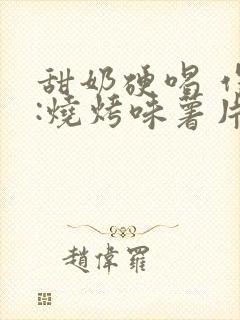 甜奶硬唱
:燒烤味薯片
趙偉羅